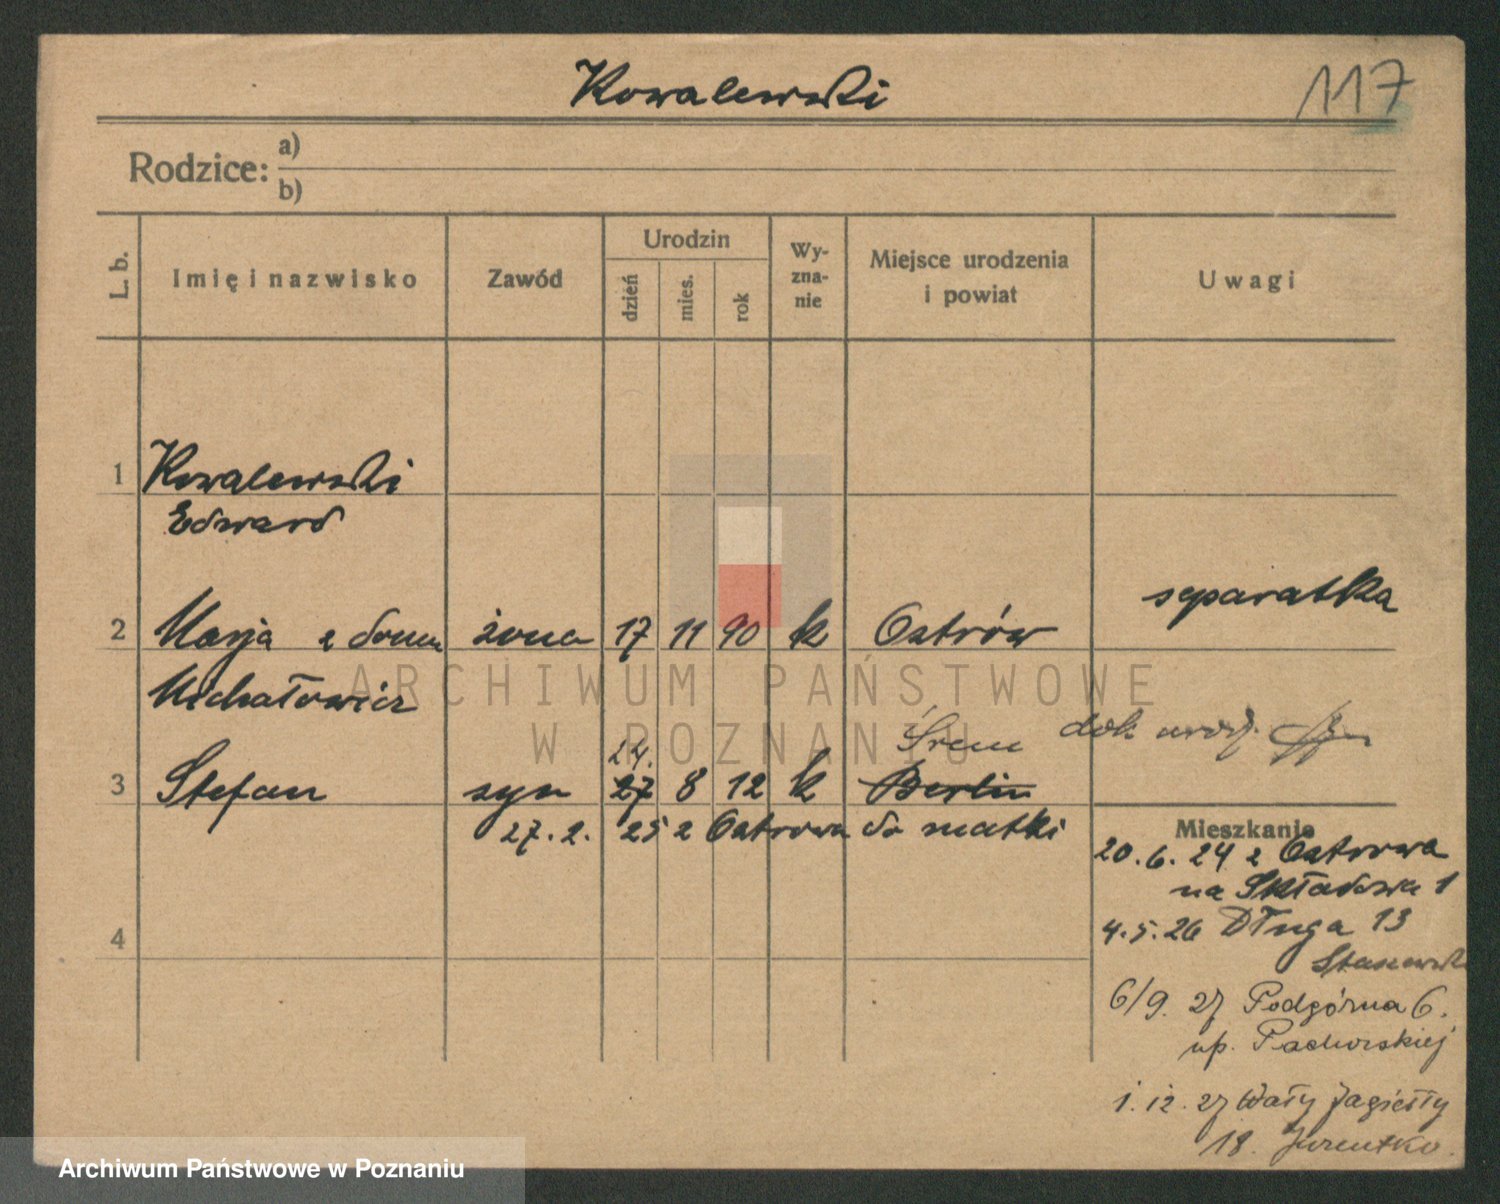 Kowalewski
117
Rodzice: a)
b)
L. b.
Imię i nazwisko
Zawód
Urodzin
dzień
mies.
rok
Wy-
zna-
nie
Miejsce urodzenia
i powiat
Uwagi
1 Kowalewski
Edward
separatka
2 Marja z domu żona 17 11 90 k Ostrów
Michałowicz
ARCHIWUM PAŃSTWOWE
W POZNANIU
Śrem dok urodz.
24.
3 Stefan syn 27 8 12 k Berlin
27. 2. 25 z Ostrowa do matki
Mieszkanie
20. 6. 24 z Ostrowa
na Składowa 1
4. 5. 26 Długa 13
4
6/9. 27 Podgórna 6.
up. Pachorskiej
1. 12. 27 Wały Jagiełły
18.
Archiwum Państwowe w Poznaniu